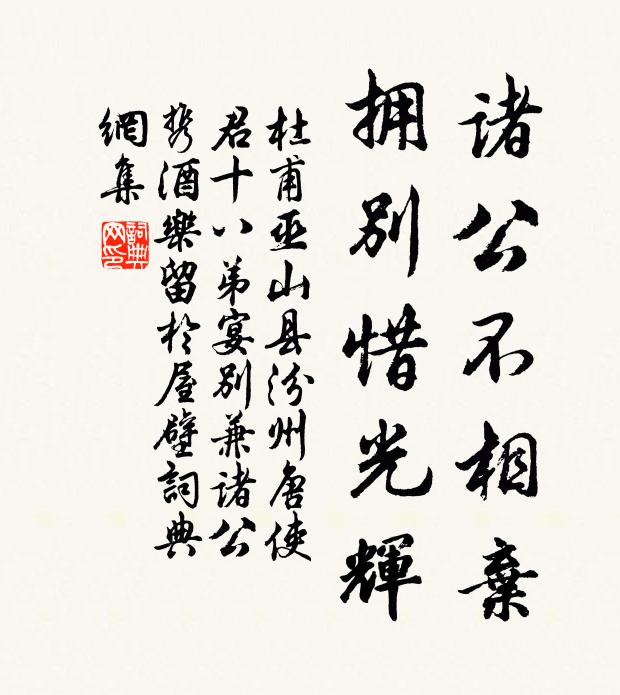 诸公不相棄
拥别惜光輝
杜甫巫山县汾州唐使
君十八弟宴别兼诸公
携酒樂留於屋壁詞典
網集
詞典
网印